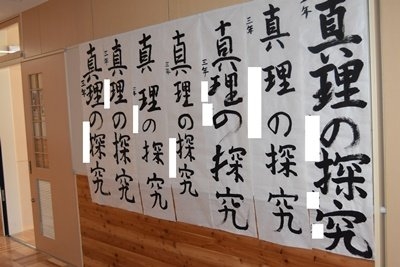 真理の探究
真理の探究
三年
真理の探究
三年
真理の探究
三年
真理の探究
三年
真理の探究
三年
真理の探究
三年